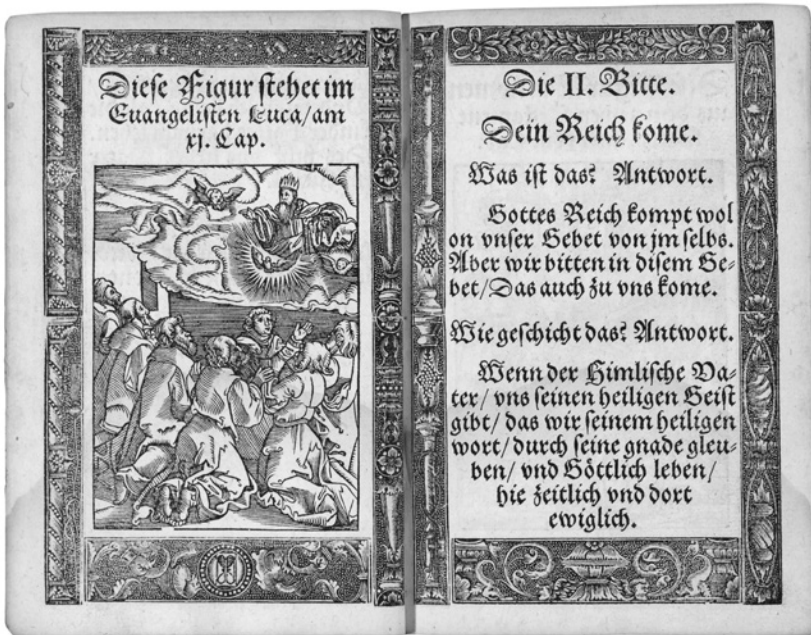 Diese Figur stehet im
Euangelisten Luca/am
xj. Cap.
Die II. Bitte.
Dein Reich kome.
Was ist das? Antwort.
Gottes Reich kompt wol
on vnser Gebet von jm selbs.
Aber wir bitten in disem Ge-
bet/Das auch zu vns kome.
Wie geschicht das? Antwort.
Wenn der Himlische Va-
ter/ vns seinen heiligen Geist
gibt/ das wir seinem heiligen
wort/ durch seine gnade gleu-
ben/ vnd Göttlich leben/
hie zeitlich vnd dort
ewiglich.